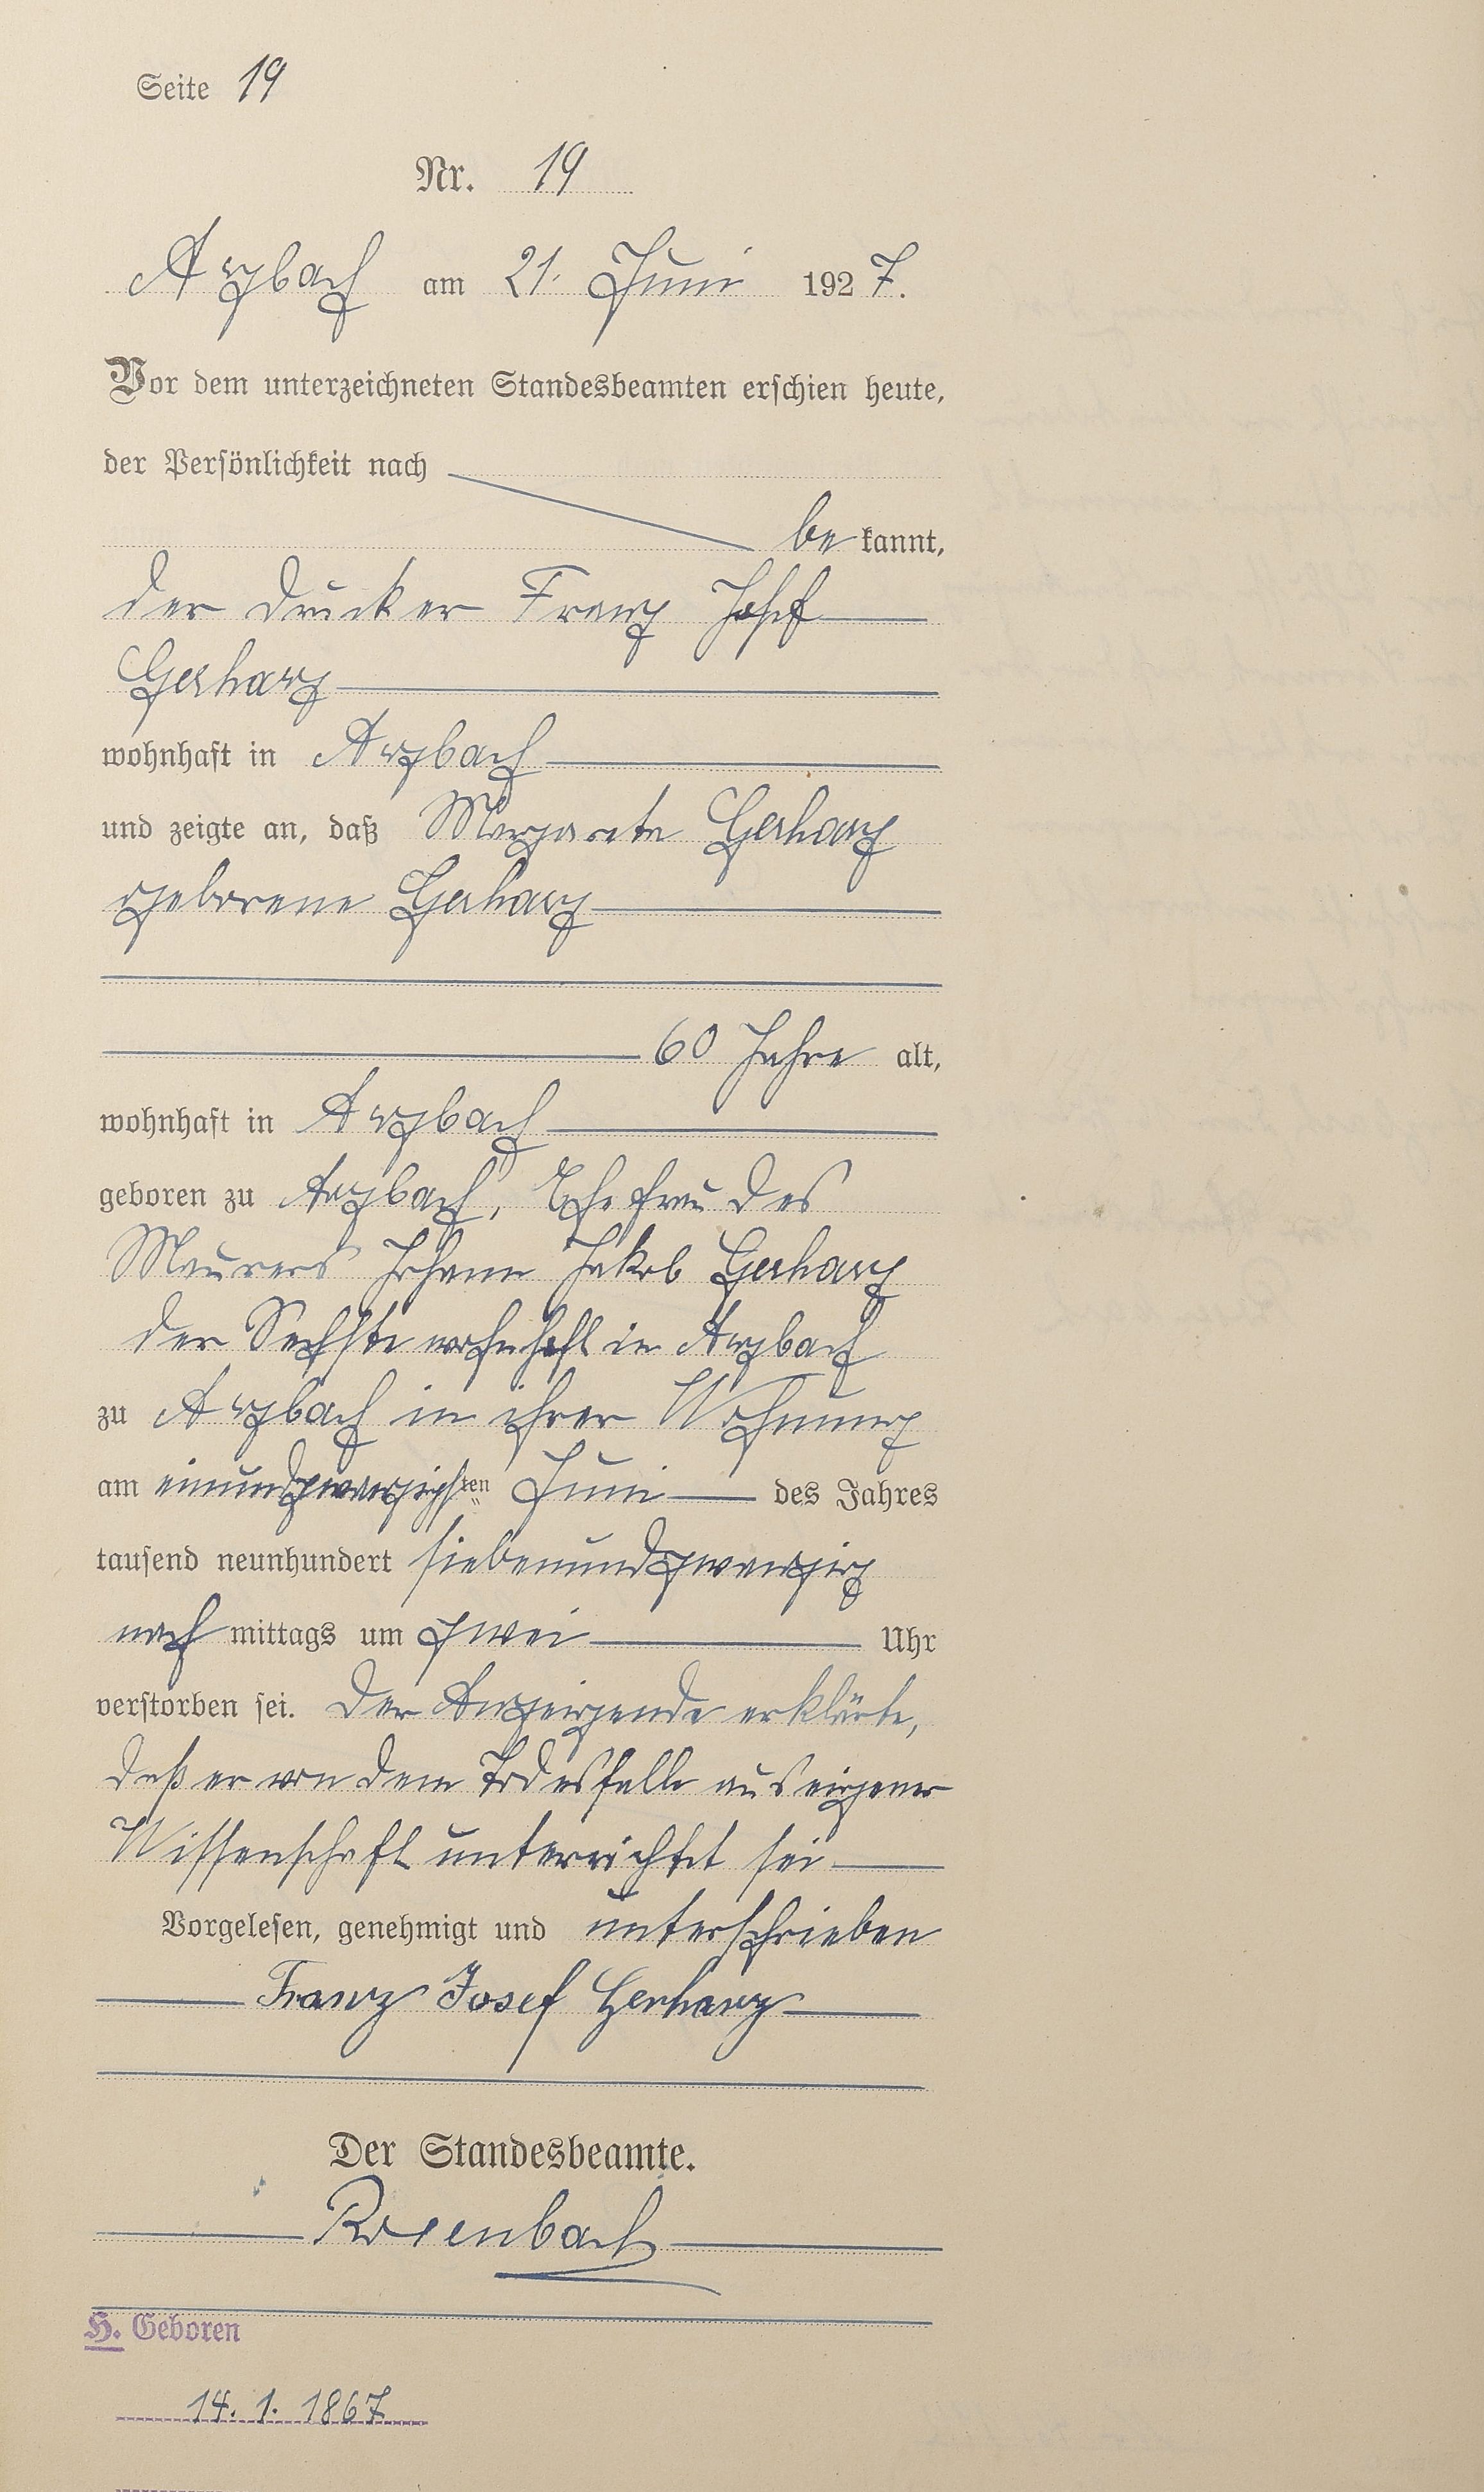 Seite 19
Nr. 19
Arzbach am 21. Juni 1927.
Vor dem unterzeichneten Standesbeamten erschien heute,
der Persönlichkeit nach
be kannt,
der Drucker Franz Josef
Gerharz
wohnhaft in Arzbach
und zeigte an, daß Margareta Gerharz
geborene Gerharz
60 Jahre alt,
wohnhaft in Arzbach
geboren zu Arzbach, Ehefrau des
Maurers Johann Jakob Gerharz
der Sechste wohnhaft in Arzbach
zu Arzbach in ihrer Wohnung
am einundzwanzigsten Juni des Jahres
tausend neunhundert siebenundzwanzig
nach mittags um zwei Uhr
verstorben sei. Der Anzeigende erklärte,
daß er von dem Todesfalle aus eigener
Wissenschaft unterrichtet sei
Vorgelesen, genehmigt und unterschrieben
Franz Josef Gerharz
Der Standesbeamte.
Rosenbach
H. Geboren
14. 1. 1867